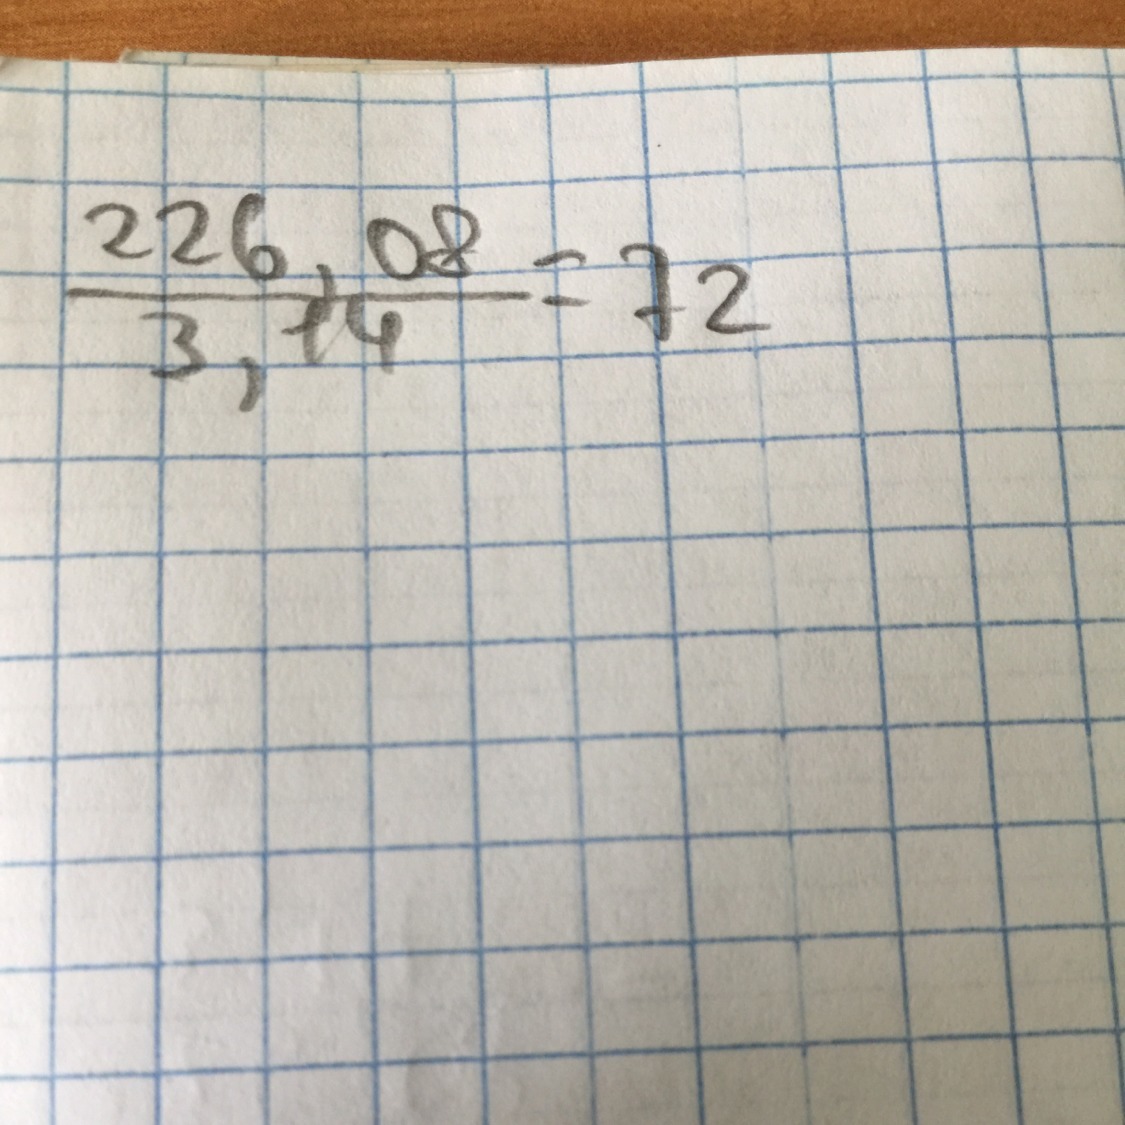 226,08
3,14
=72